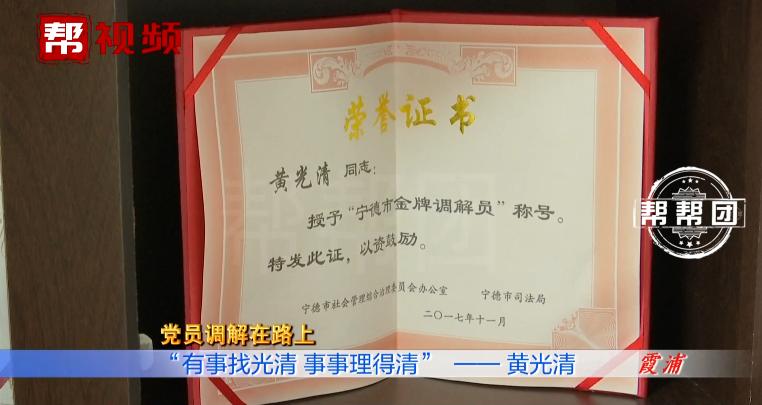 帮视频
荣誉证书
黄光清 同志：
授予“宁德市金牌调解员”称号。
特发此证，以资鼓励。
宁德市社会管理综合治理委员会办公室 宁德市司法局
二〇一七年十一月
帮帮团
帮帮团
党员调解在路上
“有事找光清 事事理得清” —— 黄光清
霞浦